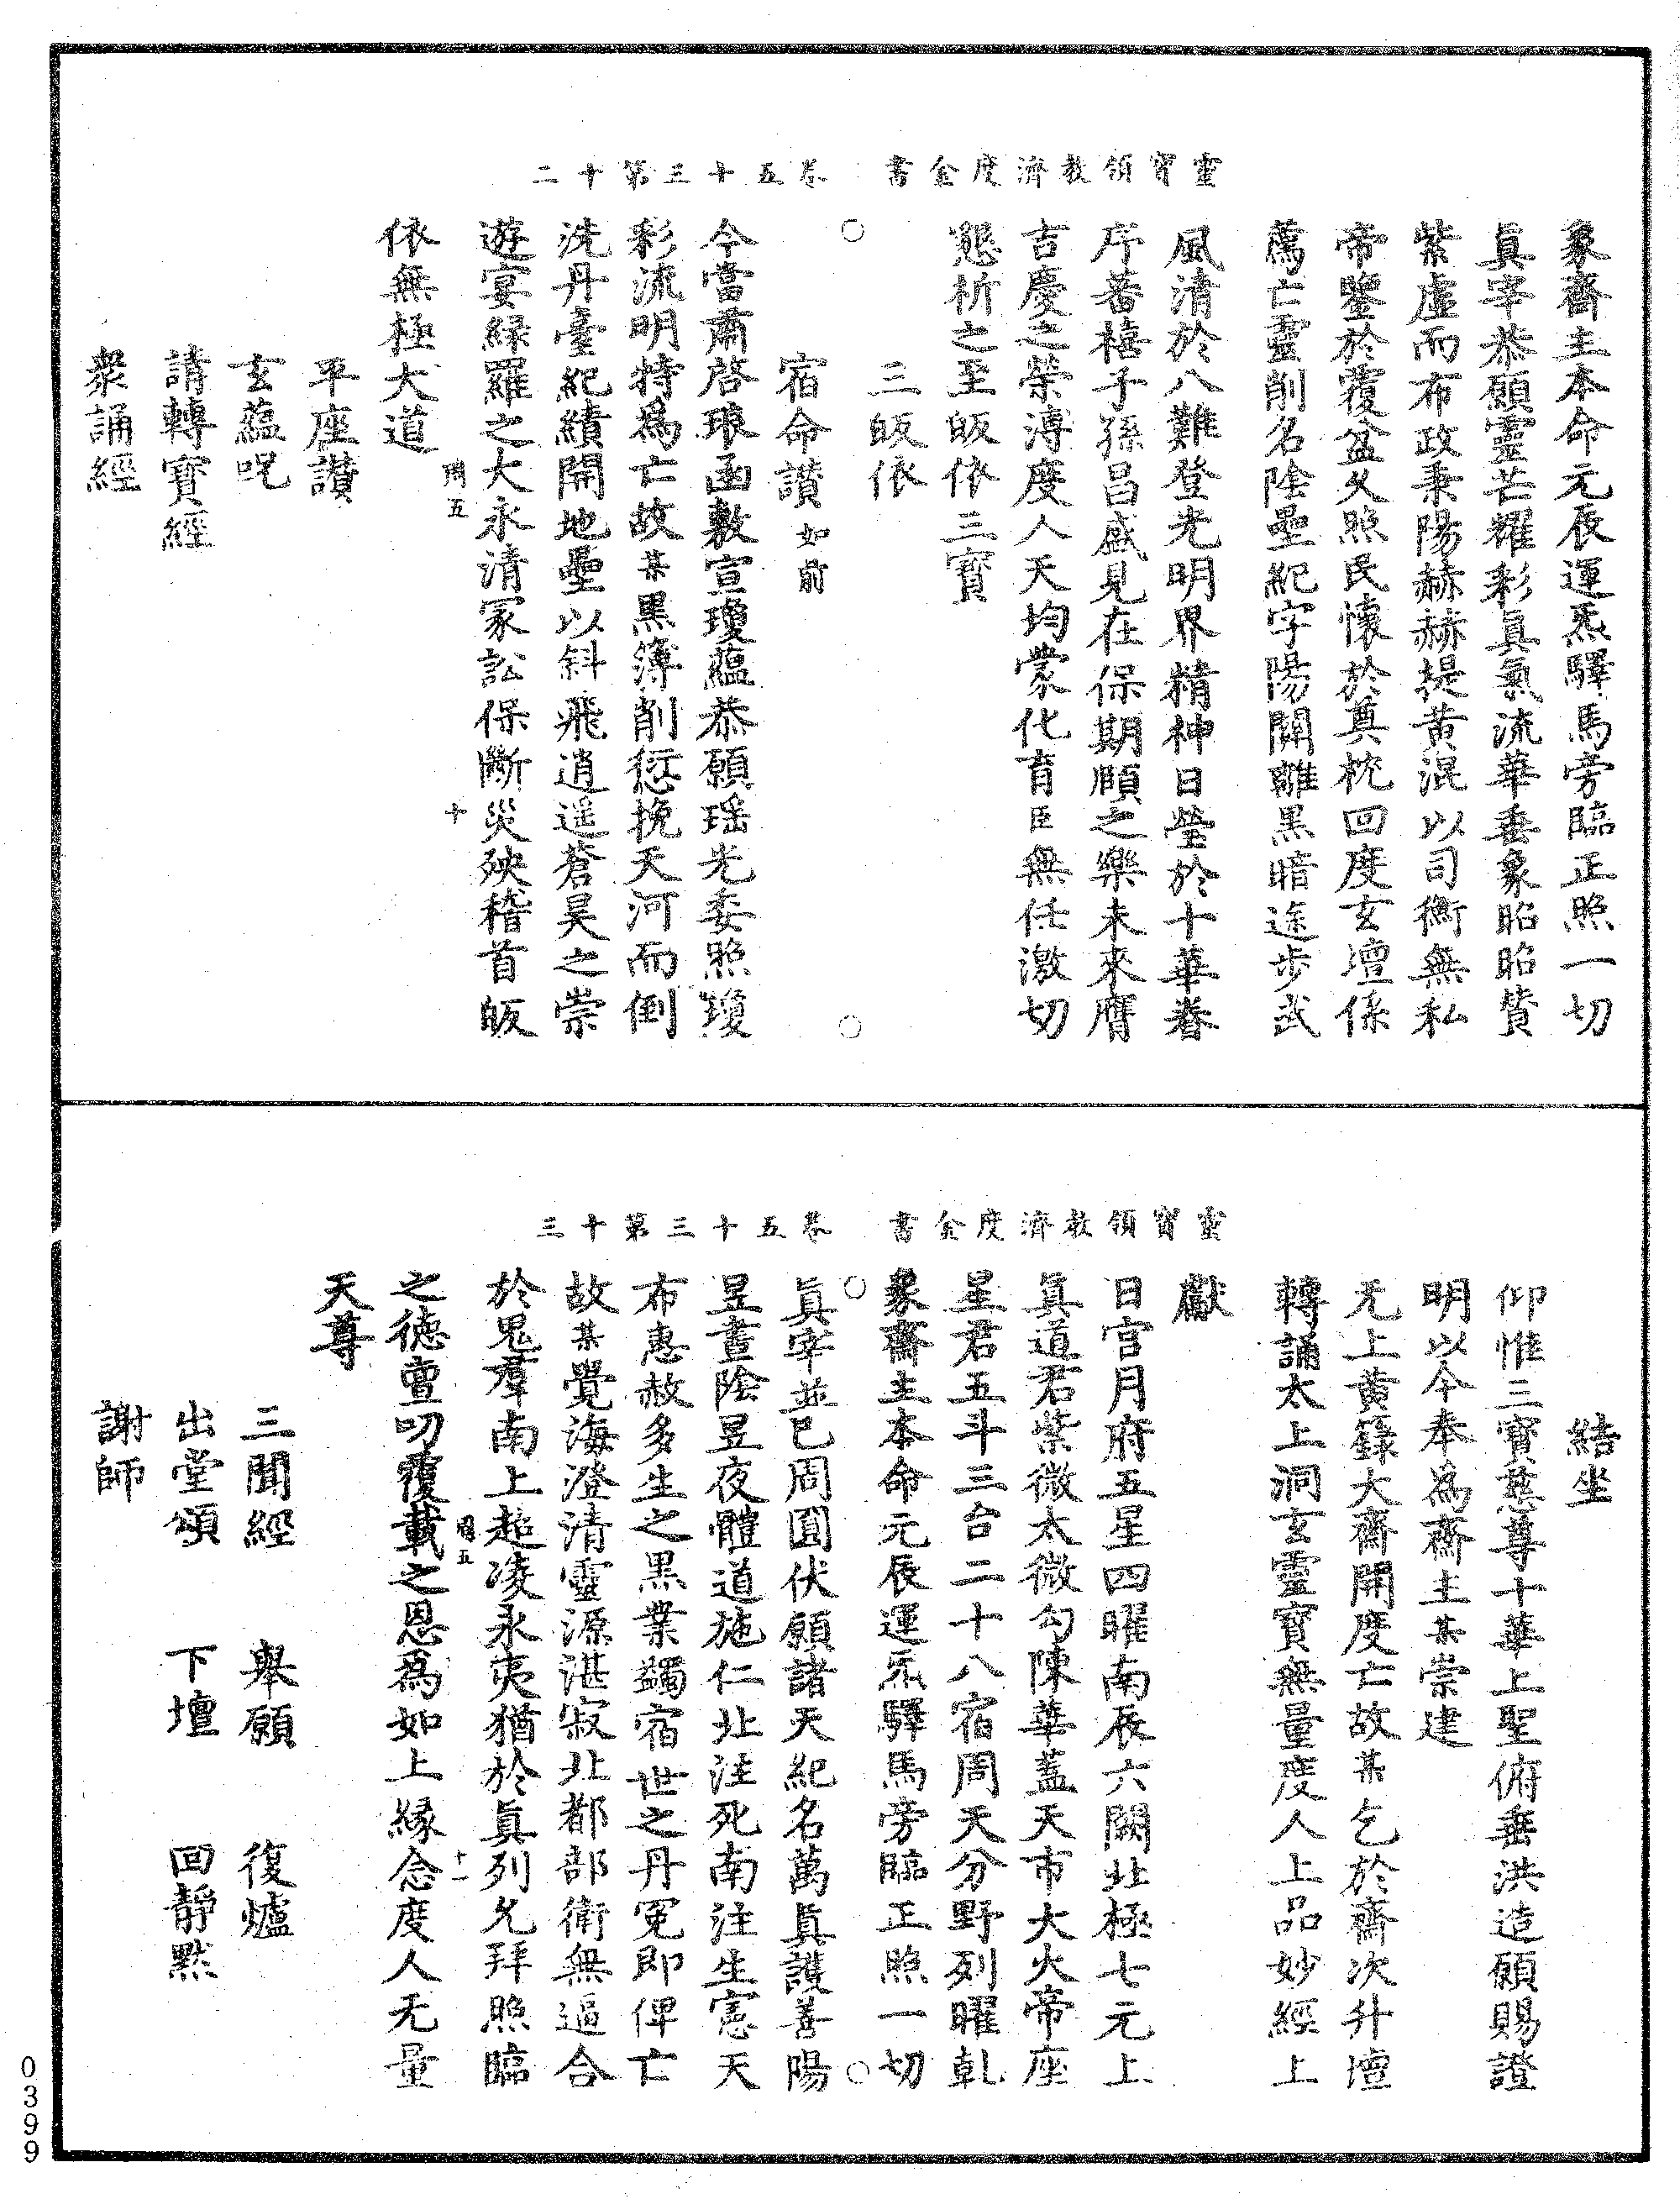 靈寶領教濟度金書　卷五十三第十二
象齋主本命元辰運炁驛馬旁臨正照一切
眞宰恭願靈芒耀彩眞氣流華垂象昭昭贊
紫虛而布政秉陽赫赫提黃混以司衡無私
帝鑒於覆盆久照民懷於奠枕回度玄壇係
薦亡靈削名陰壘紀字陽關離黑暗途步武
風清於八難登光明界精神日瑩於十華眷
序蕃禧子孫昌盛見在保期頤之樂未來膺
吉慶之榮溥度人天均蒙化育臣無任激切
懇祈之至皈依三寶
三皈依
宿命讚如前
今當肅啓琅函敷宣瓊蘊恭願瑤光委照瓊
彩流明特爲亡故某黑簿削愆挽天河而倒
洗丹臺紀績開地壘以斜飛逍遥蒼昊之崇
遊宴緑羅之大永清冢訟保斷災殃稽首皈
依無極大道
平座讚
玄蘊呪
請轉寶經
衆誦經
靈寶領教濟度金書　卷五十三第十三
結坐
仰惟三寶慈尊十華上聖俯垂洪造願賜證
明以今奉爲齋主某崇建
无上黃籙大齋開度亡故某乞於齋次升壇
轉誦太上洞玄靈寶無量度人上品妙經上
獻
日宮月府五星四曜南辰六闕北極七元上
眞道君紫微太微勾陳華蓋天市大火帝座
星君五斗三台二十八宿周天分野列曜乹
象齋主本命元辰運炁驛馬旁臨正照一切
眞宰並已周圓伏願諸天紀名萬眞護善陽
昱晝陰昱夜體道施仁北注死南注生憲天
布惠赦多生之黑業蠲宿世之丹冤即俾亡
故某覺海澄清靈源湛寂北都部衛無逼合
於鬼羣南上超凌永夷猶於眞列允拜照臨
之德亶叨覆載之恩爲如上緣念度人无量
天尊
三聞經　舉願　復爐
出堂頌　下壇　回靜默
謝師
0399